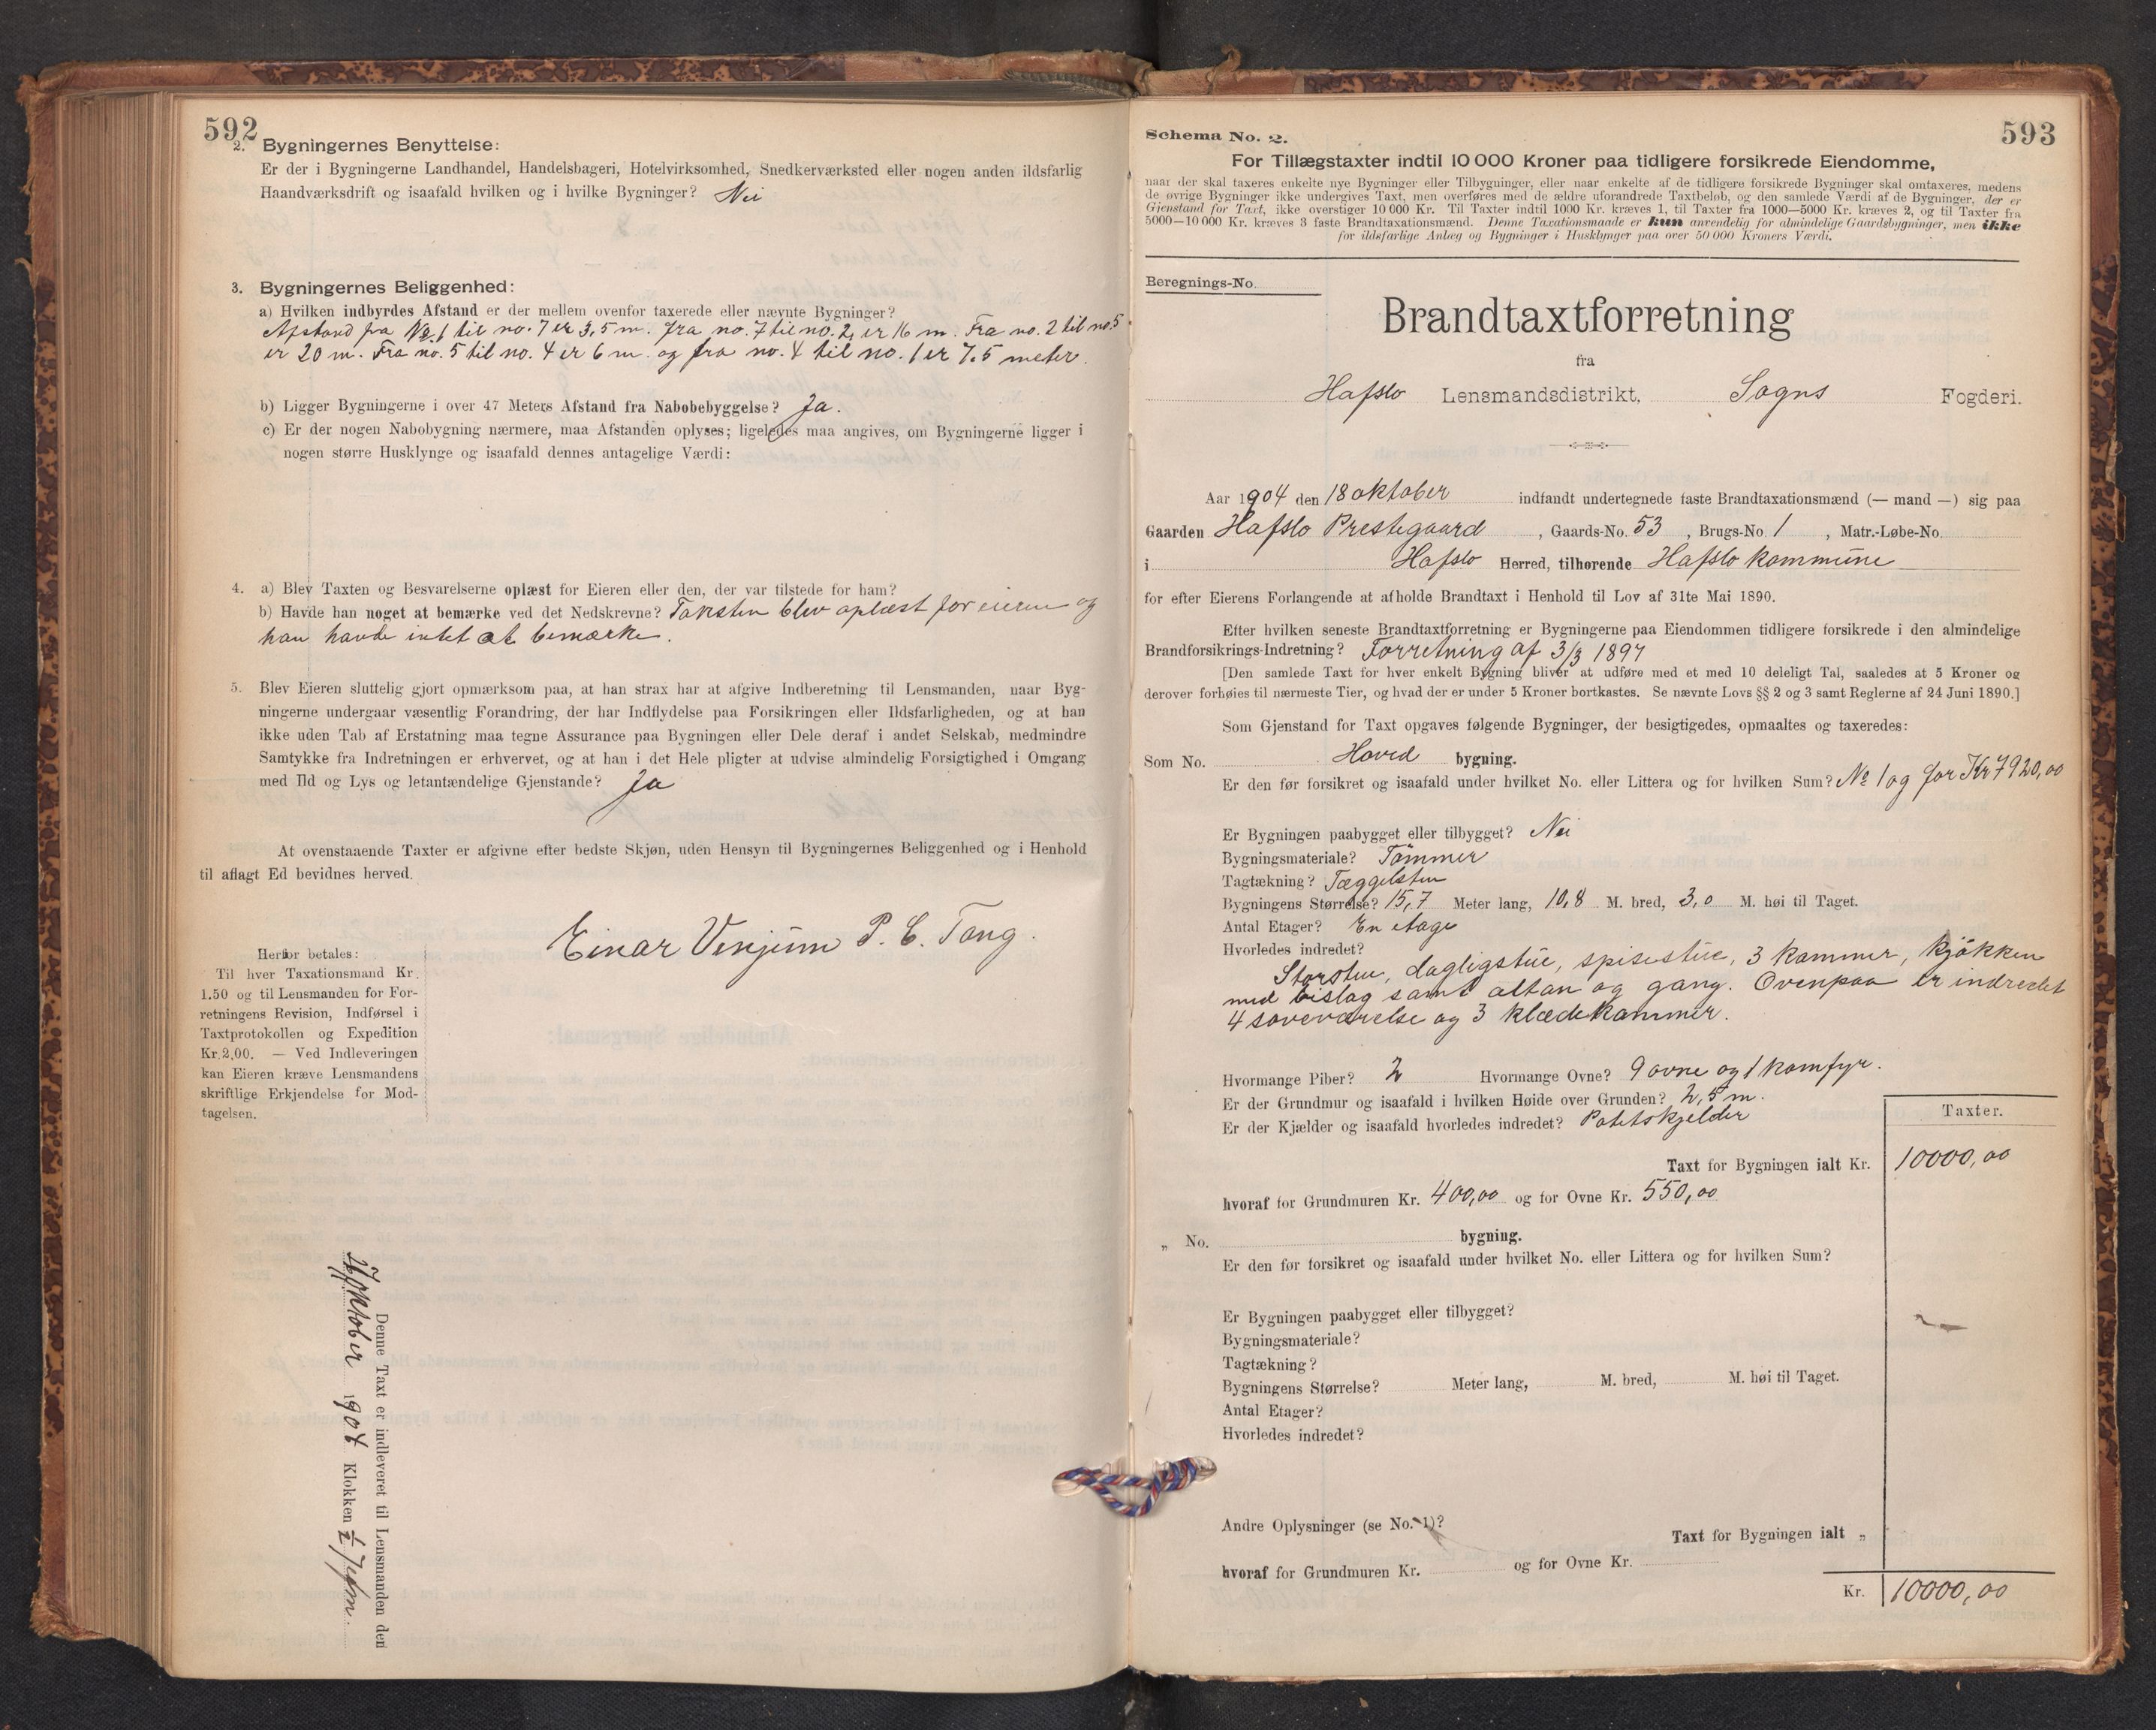 592
2. Bygningernes Benyttelse:
Er der i Bygningerne Landhandel, Handelsbageri, Hotelvirksomhed, Snedkerværksted eller nogen anden ildsfarlig
Haandværksdrift og isaafald hvilken og i hvilke Bygninger? Nei
3. Bygningernes Beliggenhed:
a) Hvilken indbyrdes Afstand er der mellem ovenfor taxerede eller nævnte Bygninger?
Afstand fra No. 1 til no. 7 er 3,5 m. fra no. 7 til no. 2 er 16 m. Fra no. 2 til no. 5
er 20 m. Fra no. 5 til no. 4 er 6 m. og fra no. 4 til no. 1 er 7.5 meter.
b) Ligger Bygningerne i over 47 Meters Afstand fra Nabobebyggelse? Ja.
c) Er der nogen Nabobygning nærmere, maa Afstanden oplyses; ligeledes maa angives, om Bygningerne ligger i
nogen større Husklynge og isaafald dennes antagelige Værdi:
4. a) Blev Taxten og Besvarelserne oplæst for Eieren eller den, der var tilstede for ham?
b) Havde han noget at bemærke ved det Nedskrevne? Taksten blev oplæst for eieren og
han havde intet at bemærke.
5. Blev Eieren sluttelig gjort opmærksom paa, at han strax har at afgive Indberetning til Lensmanden, naar Byg-
ningerne undergaar væsentlig Forandring, der har Indflydelse paa Forsikringen eller Ildsfarligheden, og at han
ikke uden Tab af Erstatning maa tegne Assurance paa Bygningen eller Dele deraf i andet Selskab, medmindre
Samtykke fra Indretningen er erhvervet, og at han i det Hele pligter at udvise almindelig Forsigtighed i Omgang
med Ild og Lys og letantændelige Gjenstande? Ja
At ovenstaaende Taxter er afgivne efter bedste Skjøn, uden Hensyn til Bygningernes Beliggenhed og i Henhold
til aflagt Ed bevidnes herved.
Einar Venjum P. C. Tang.
Herfor betales:
Til hver Taxationsmand Kr.
1.50 og til Lensmanden for For-
retningens Revision, Indførsel i
Taxtprotokollen og Expedition
Kr. 2,00. — Ved Indleveringen
kan Eieren kræve Lensmandens
skriftlige Erkjendelse for Mod-
tagelsen.
Denne Taxt er indleveret til Lensmanden den
oktober 1904 Klokken
593
Schema No. 2.
For Tillægstaxter indtil 10 000 Kroner paa tidligere forsikrede Eiendomme,
naar der skal taxeres enkelte nye Bygninger eller Tilbygninger, eller naar enkelte af de tidligere forsikrede Bygninger skal omtaxeres, medens
de øvrige Bygninger ikke undergives Taxt, men overføres med de ældre uforandrede Taxtbeløb, og den samlede Værdi af de Bygninger, der er
Gjenstand for Taxt, ikke overstiger 10 000 Kr. Til Taxter indtil 1000 Kr. kræves 1, til Taxter fra 1000—5000 Kr. kræves 2, og til Taxter fra
5000—10 000 Kr. kræves 3 faste Brandtaxationsmænd. Denne Taxationsmaade er kun anvendelig for almindelige Gaardsbygninger, men ikke
for ildsfarlige Anlæg og Bygninger i Husklynger paa over 50 000 Kroners Værdi.
Beregnings-No.
Brandtaxtforretning
fra
Hafslo Lensmandsdistrikt, Sogns Fogderi.
Aar 1904 den 18 oktober indfandt undertegnede faste Brandtaxationsmænd (— mand —) sig paa
Gaarden Hafslo Prestegaard, Gaards-No. 53, Brugs-No. 1, Matr.-Løbe-No.
i Hafslo Herred, tilhørende Hafslo kommune
for efter Eierens Forlangende at afholde Brandtaxt i Henhold til Lov af 31te Mai 1890.
Efter hvilken seneste Brandtaxtforretning er Bygningerne paa Eiendommen tidligere forsikrede i den almindelige
Brandforsikrings-Indretning? Forretning af 3/3 1897
[Den samlede Taxt for hver enkelt Bygning bliver at udføre med et med 10 deleligt Tal, saaledes at 5 Kroner og
derover forhøies til nærmeste Tier, og hvad der er under 5 Kroner bortkastes. Se nævnte Lovs §§ 2 og 3 samt Reglerne af 24 Juni 1890.]
Som Gjenstand for Taxt opgaves følgende Bygninger, der besigtigedes, opmaaltes og taxeredes:
Som No. Hoved bygning.
Er den før forsikret og isaafald under hvilket No. eller Littera og for hvilken Sum? No 1 og for Kr 7920,00
Er Bygningen paabygget eller tilbygget? Nei
Bygningsmateriale? Tømmer
Tagtækning? Tæggelsten
Bygningens Størrelse? 15,7 Meter lang, 10,8 M. bred, 3,0 M. høi til Taget.
Antal Etager? En etage
Hvorledes indredet?
Storstue, dagligstue, spisestue, 3 kammer, kjøkken
med bislag samt altan og gang. Ovenpaa er indredet
4 soveværelse og 3 klædekammer.
Hvormange Piber? 2 Hvormange Ovne? 9 ovne og 1 komfyr.
Er der Grundmur og isaafald i hvilken Høide over Grunden? 2,5 m.
Er der Kjælder og isaafald hvorledes indredet? Potetskjelder
Taxter.
Taxt for Bygningen ialt Kr. 10000,00
hvoraf for Grundmuren Kr. 400,00 og for Ovne Kr. 550,00
„ No. bygning.
Er den før forsikret og isaafald under hvilket No. eller Littera og for hvilken Sum?
Er Bygningen paabygget eller tilbygget?
Bygningsmateriale?
Tagtækning?
Bygningens Størrelse? Meter lang, M. bred, M. høi til Taget.
Antal Etager?
Hvorledes indredet?
Andre Oplysninger (se No. 1)?
Taxt for Bygningen ialt „
hvoraf for Grundmuren Kr. og for Ovne Kr.
Kr. 10000,00